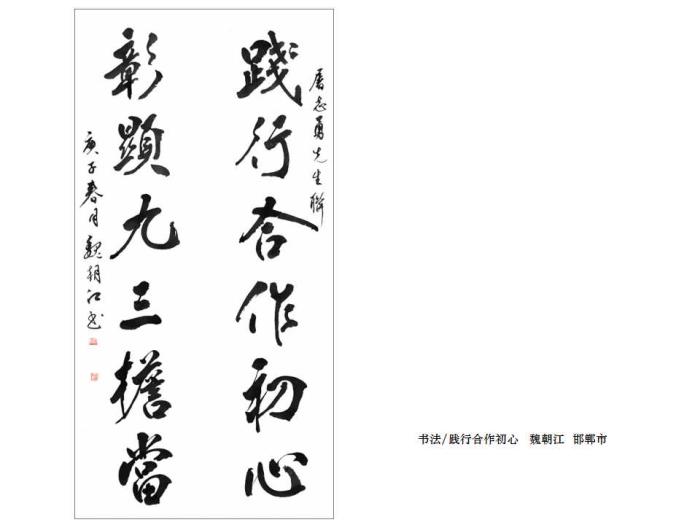 践行合作初心
屠志勇先生联
彰顯九三擔當
庚子春月魏朝江书
书法/践行合作初心 魏朝江 邯郸市